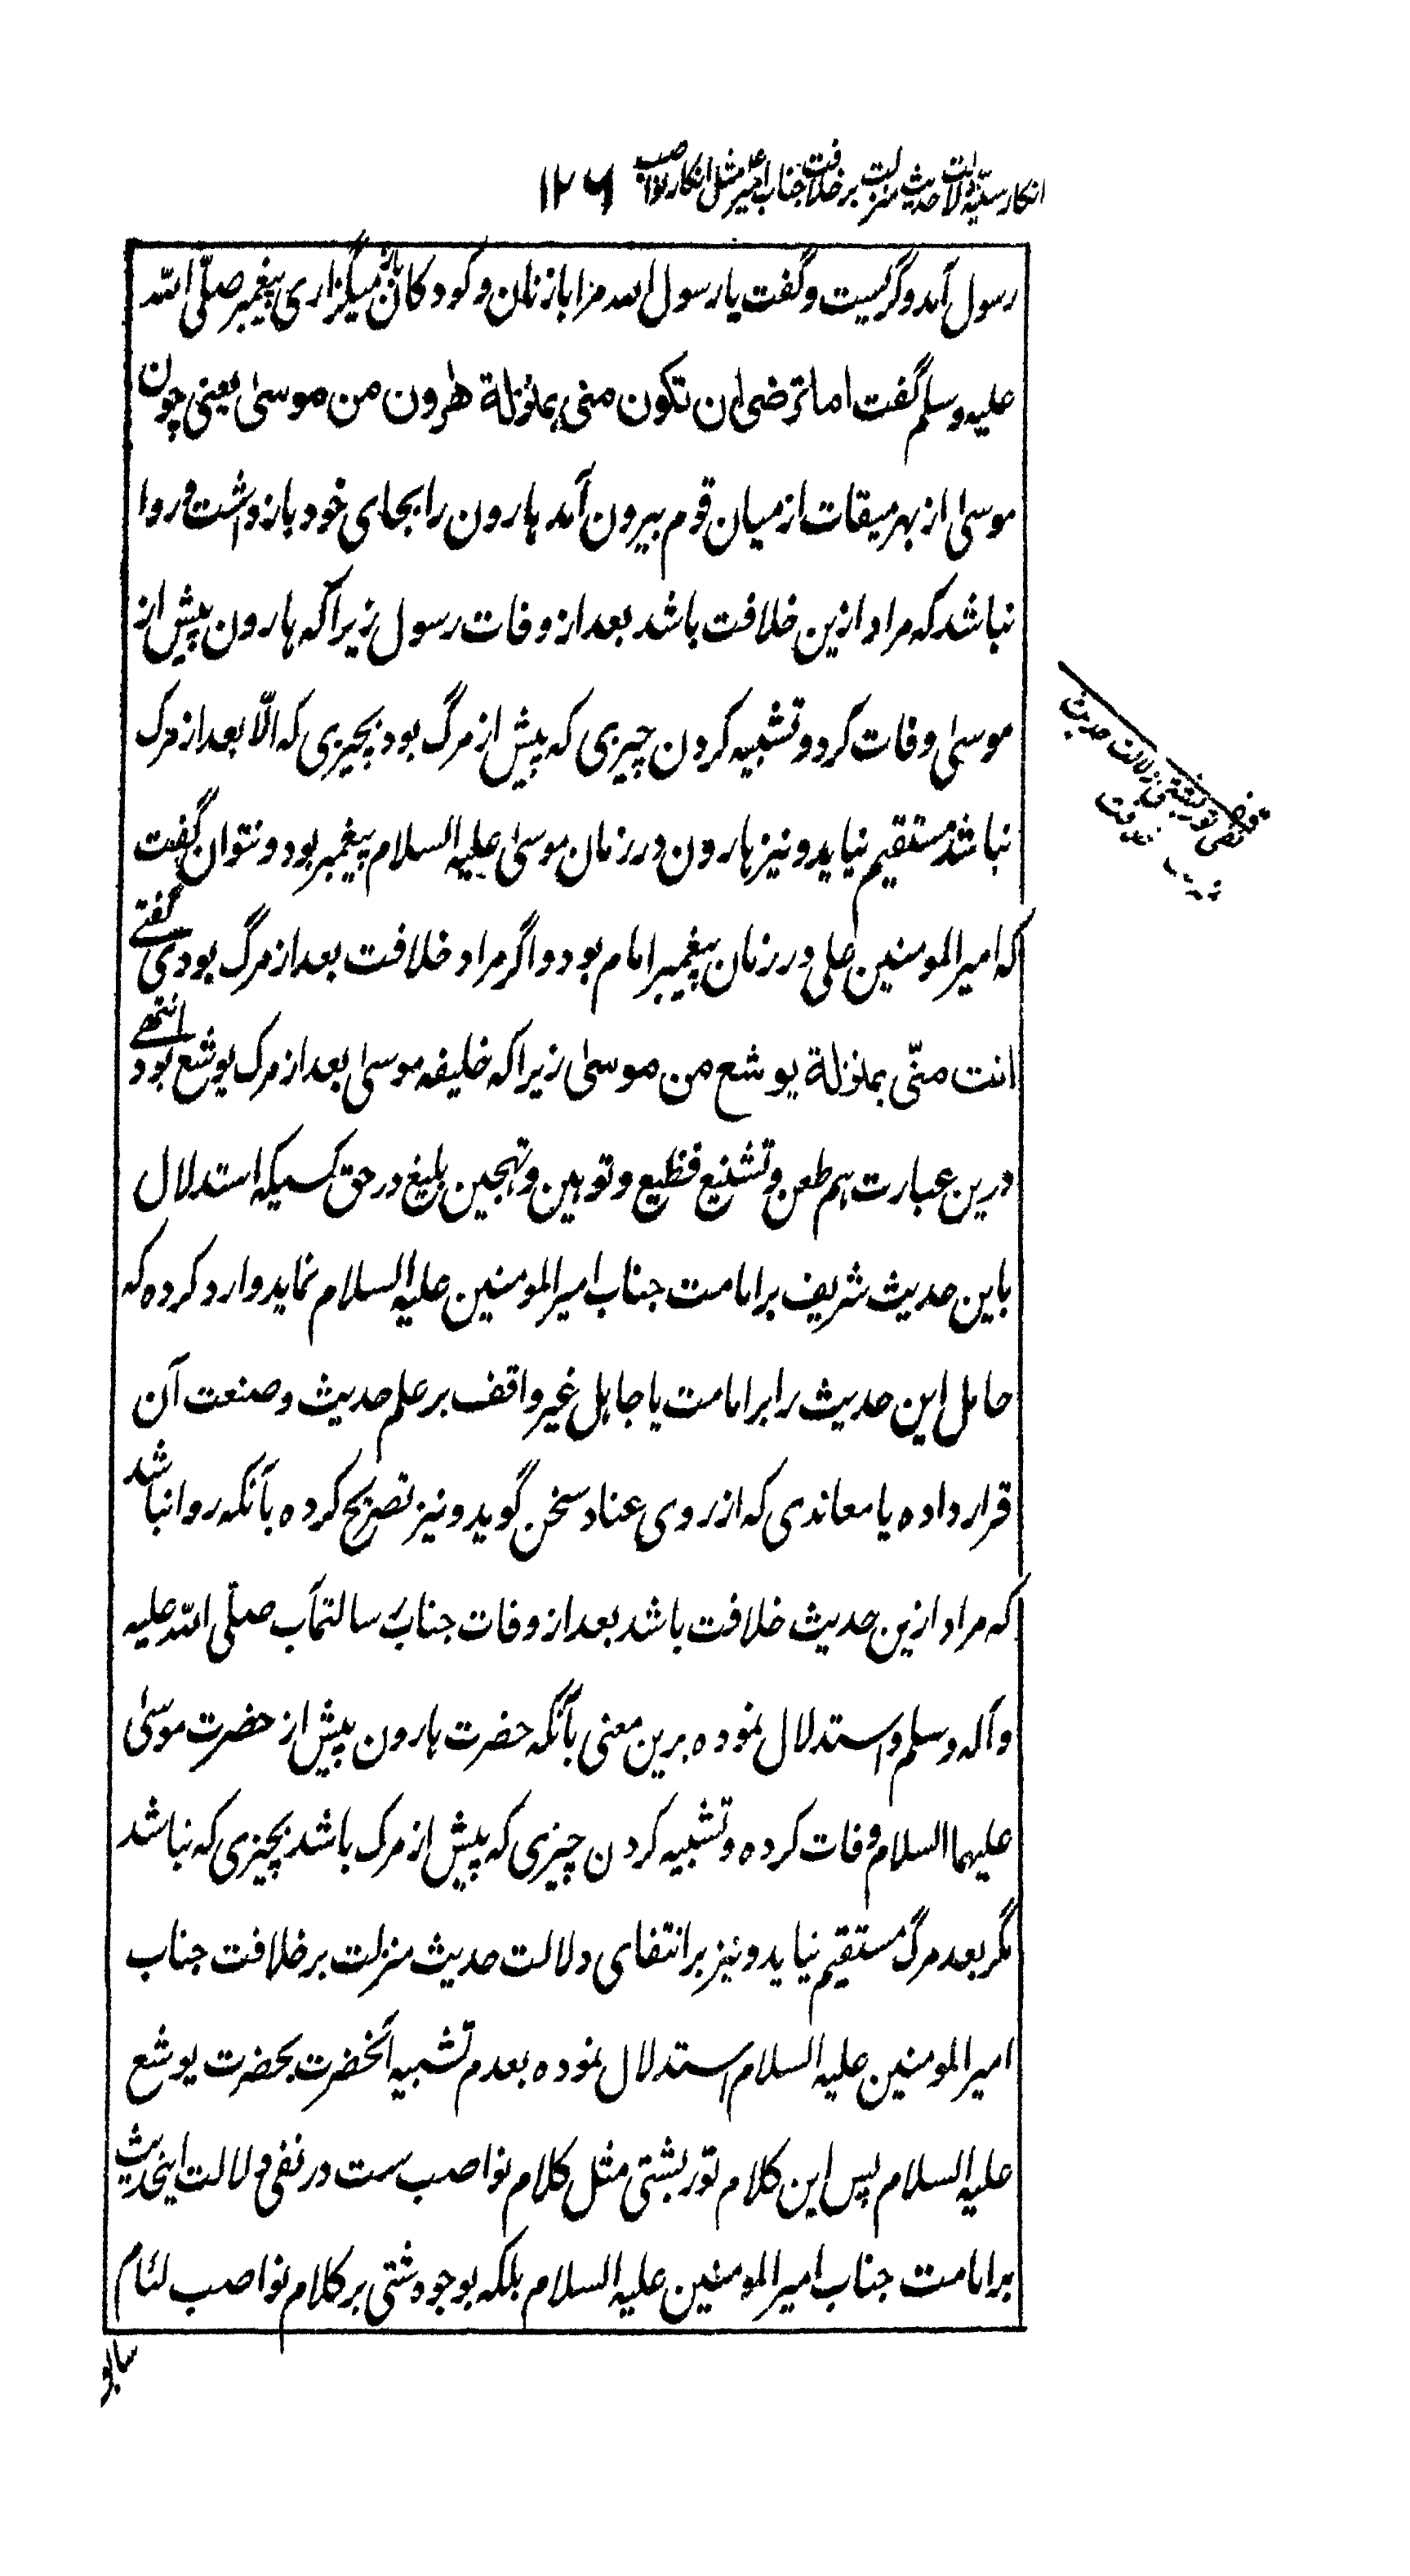 انکار سنیه دلالت حدیث منزلت بر خلافت جناب امیرؑ مثل انکار نواصب ۱۲۶
رسول آمد و گریست و گفت یا رسول الله مرا با زنان و کودکان باز میگزاری پیغمبر صلّی الله
علیه وسلم گفت اما ترضی ان تکون منی بمنزلة هٰرون من موسیٰ یعنی چون
موسیٰ از بهر میقات از میان قوم بیرون آمد هارون را بجای خود باز داشت و روا
نباشد که مراد ازین خلافت باشد بعد از وفات رسول زیرا که هارون پیش از
موسیٰ وفات کرد و تشبیه کردن چیزی که پیش از مرگ بود بچیزی که الّا بعد از مرگ
نباشد مستقیم نیاید و نیز هارون در زمان موسیٰ علیه السلام پیغمبر بود و نتوان گفت
که امیر المومنین علی در زمان پیغمبر امام بود و اگر مراد خلافت بعد از مرگ بودی گفتے
انت منّی بمنزلة یوشع من موسیٰ زیرا که خلیفه موسیٰ بعد از مرگ یوشع بود انتهے
درین عبارت هم طعن و تشنیع فظیع و توهین و تهجین بلیغ در حق کسیکه استدلال
باین حدیث شریف بر امامت جناب امیر المومنین علیه السلام نماید وارد کرده که
حامل این حدیث را بر امامت یا جاهل غیر واقف بر علم حدیث و صنعت آن
قرار داده یا معاندی که از روی عناد سخن گوید و نیز تصریح کرده بآنکه روا نباشد
که مراد ازین حدیث خلافت باشد بعد از وفات جناب رسالتمآب صلّی الله علیه
و آله وسلم و استدلال نموده برین معنی بآنکه حضرت هارون پیش از حضرت موسیٰ
علیهما السلام وفات کرده و تشبیه کردن چیزی که پیش از مرگ باشد بچیزی که نباشد
مگر بعد مرگ مستقیم نیاید و نیز بر انتفای دلالت حدیث منزلت بر خلافت جناب
امیر المومنین علیه السلام استدلال نموده بعدم تشبیه آنحضرت بحضرت یوشع
علیه السلام پس این کلام توربشتی مثل کلام نواصب ست در نفی دلالت این حدیث
بر امامت جناب امیر المومنین علیه السلام بلکه بوجوه شتی بر کلام نواصب لئام
توربشتی دلالت حدیث
خلافت